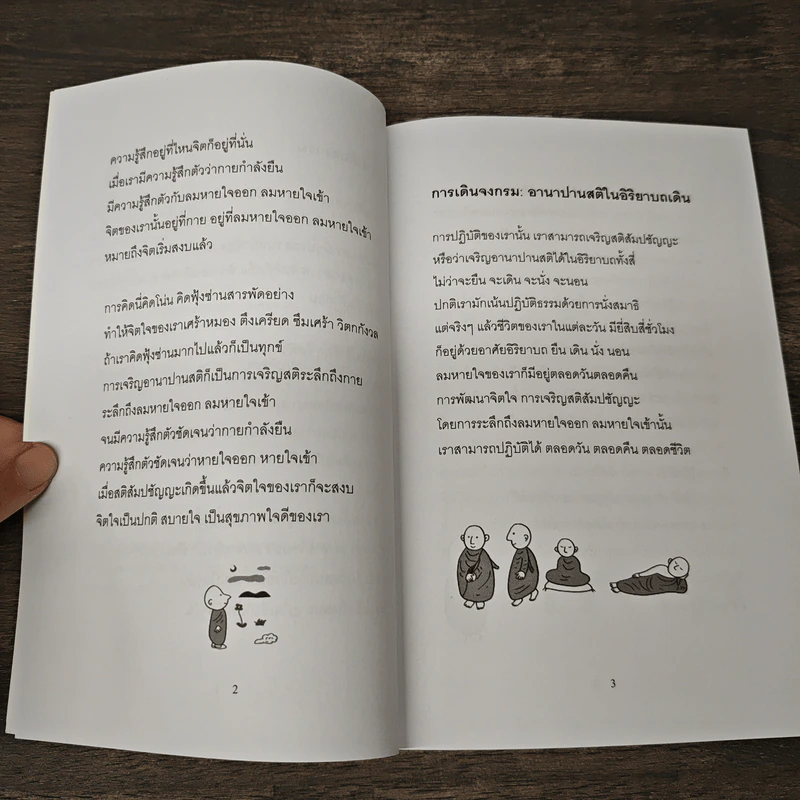 ความรู้สึกอยู่ที่ไหนจิตก็อยู่ที่นั่น
เมื่อเรามีความรู้สึกตัวว่ากายกำลังยืน
มีความรู้สึกตัวกับลมหายใจออก ลมหายใจเข้า
จิตของเรานั้นอยู่ที่กาย อยู่ที่ลมหายใจออก ลมหายใจเข้า
หมายถึงจิตเริ่มสงบแล้ว
การคิดนี่คิดโน่น คิดฟุ้งซ่านสารพัดอย่าง
ทำให้จิตใจของเราเศร้าหมอง ตึงเครียด ซึมเศร้า วิตกกังวล
ถ้าเราคิดฟุ้งซ่านมากไปแล้วก็เป็นทุกข์
การเจริญอานาปานสติก็เป็นการเจริญสติระลึกถึงกาย
ระลึกถึงลมหายใจออก ลมหายใจเข้า
จนมีความรู้สึกตัวชัดเจนว่ากายกำลังยืน
ความรู้สึกตัวชัดเจนว่าหายใจออก หายใจเข้า
เมื่อสติสัมปชัญญะเกิดขึ้นแล้วจิตใจของเราก็จะสงบ
จิตใจเป็นปกติ สบายใจ เป็นสุขภาพใจดีของเรา
2
การเดินจงกรม: อานาปานสติในอิริยาบถเดิน
การปฏิบัติของเรานั้น เราสามารถเจริญสติสัมปชัญญะ
หรือว่าเจริญอานาปานสติได้ในอิริยาบถทั้งสี่
ไม่ว่าจะยืน จะเดิน จะนั่ง จะนอน
ปกติเรามักเน้นปฏิบัติธรรมด้วยการนั่งสมาธิ
แต่จริงๆ แล้วชีวิตของเราในแต่ละวัน มียี่สิบสี่ชั่วโมง
ก็อยู่ด้วยอาศัยอิริยาบถ ยืน เดิน นั่ง นอน
ลมหายใจของเราก็มีอยู่ตลอดวันตลอดคืน
การพัฒนาจิตใจ การเจริญสติสัมปชัญญะ
โดยการระลึกถึงลมหายใจออก ลมหายใจเข้านั้น
เราสามารถปฏิบัติได้ ตลอดวัน ตลอดคืน ตลอดชีวิต
3